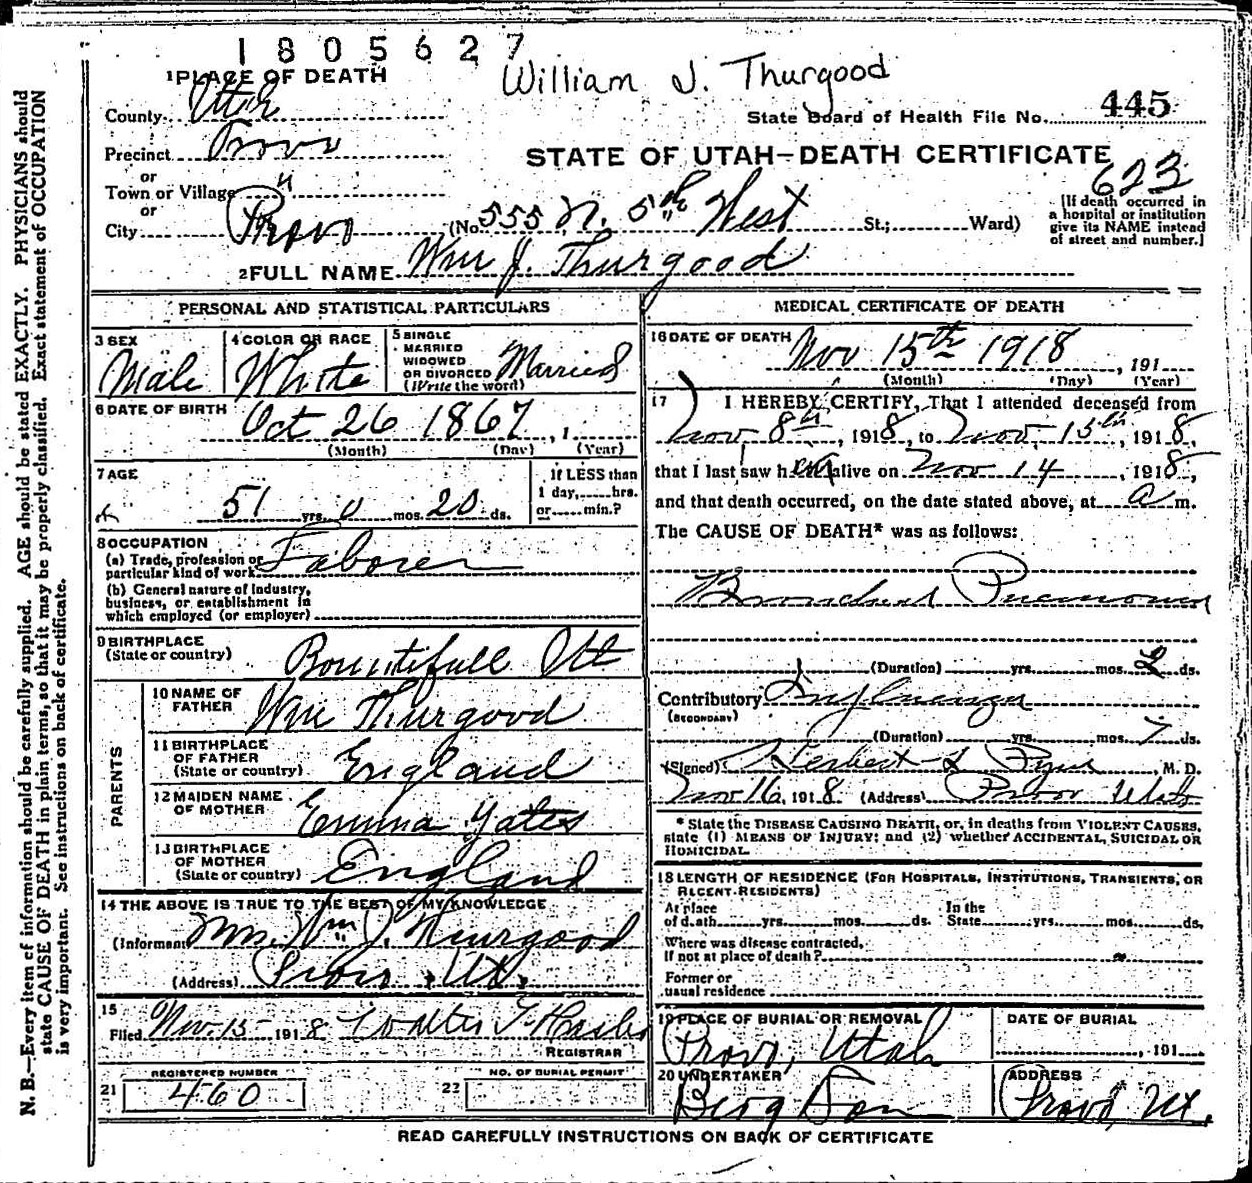 1805627
William J. Thurgood
1 PLACE OF DEATH
County Utah
State Board of Health File No. 445
Precinct Provo
STATE OF UTAH—DEATH CERTIFICATE
623
or
Town or Village "
or
City Provo (No 555 N. 5th West St.; Ward)
[If death occurred in
a hospital or institution
give its NAME instead
of street and number.]
2 FULL NAME Wm J. Thurgood
PERSONAL AND STATISTICAL PARTICULARS
3 SEX
Male
4 COLOR OR RACE
White
5 SINGLE
MARRIED
WIDOWED
OR DIVORCED
(Write the word)
Married
6 DATE OF BIRTH
Oct 26 1867, 1
(Month) (Day) (Year)
7 AGE
51 yrs. 0 mos. 20 ds.
If LESS than
1 day, hrs.
or min.?
8 OCCUPATION
(a) Trade, profession or
particular kind of work Laborer
(b) General nature of industry,
business, or establishment in
which employed (or employer)
9 BIRTHPLACE
(State or country) Bountifull Ut
PARENTS
10 NAME OF
FATHER Wm Thurgood
11 BIRTHPLACE
OF FATHER
(State or country) England
12 MAIDEN NAME
OF MOTHER Emma Yates
13 BIRTHPLACE
OF MOTHER
(State or country) England
14 THE ABOVE IS TRUE TO THE BEST OF MY KNOWLEDGE
(Informant Mrs. Wm J. Thurgood
(Address) Provo, Ut.
15
Filed Nov. 15 1918 Walter T. Hasler
REGISTRAR
REGISTERED NUMBER
21 460
NO. OF BURIAL PERMIT
22
MEDICAL CERTIFICATE OF DEATH
16 DATE OF DEATH Nov 15th 1918, 191
(Month) (Day) (Year)
17 I HEREBY CERTIFY, That I attended deceased from
Nov. 8th, 1918, to Nov. 15th, 1918,
that I last saw him alive on Nov 14, 1918,
and that death occurred, on the date stated above, at a m.
The CAUSE OF DEATH* was as follows:
Bronchial Pneumonia
(Duration) yrs. mos. 2 ds.
Contributory Influenza
(SECONDARY)
(Duration) yrs. mos. 7 ds.
(Signed) Herbert S Pyne, M. D.
Nov 16, 1918 (Address) Provo Utah
* State the DISEASE CAUSING DEATH, or, in deaths from VIOLENT CAUSES,
state (1) MEANS OF INJURY; and (2) whether ACCIDENTAL, SUICIDAL OR
HOMICIDAL.
18 LENGTH OF RESIDENCE (FOR HOSPITALS, INSTITUTIONS, TRANSIENTS, OR
RECENT RESIDENTS)
At place
of death yrs. mos. ds.
In the
State yrs. mos. ds.
Where was disease contracted,
If not at place of death?
Former or
usual residence
19 PLACE OF BURIAL OR REMOVAL
Provo, Utah
DATE OF BURIAL
, 191
20 UNDERTAKER
Berg Son
ADDRESS
Provo, Ut.
READ CAREFULLY INSTRUCTIONS ON BACK OF CERTIFICATE
N. B.—Every item of information should be carefully supplied. AGE should be stated EXACTLY. PHYSICIANS should
state CAUSE OF DEATH in plain terms, so that it may be properly classified. Exact statement of OCCUPATION
is very important. See instructions on back of certificate.